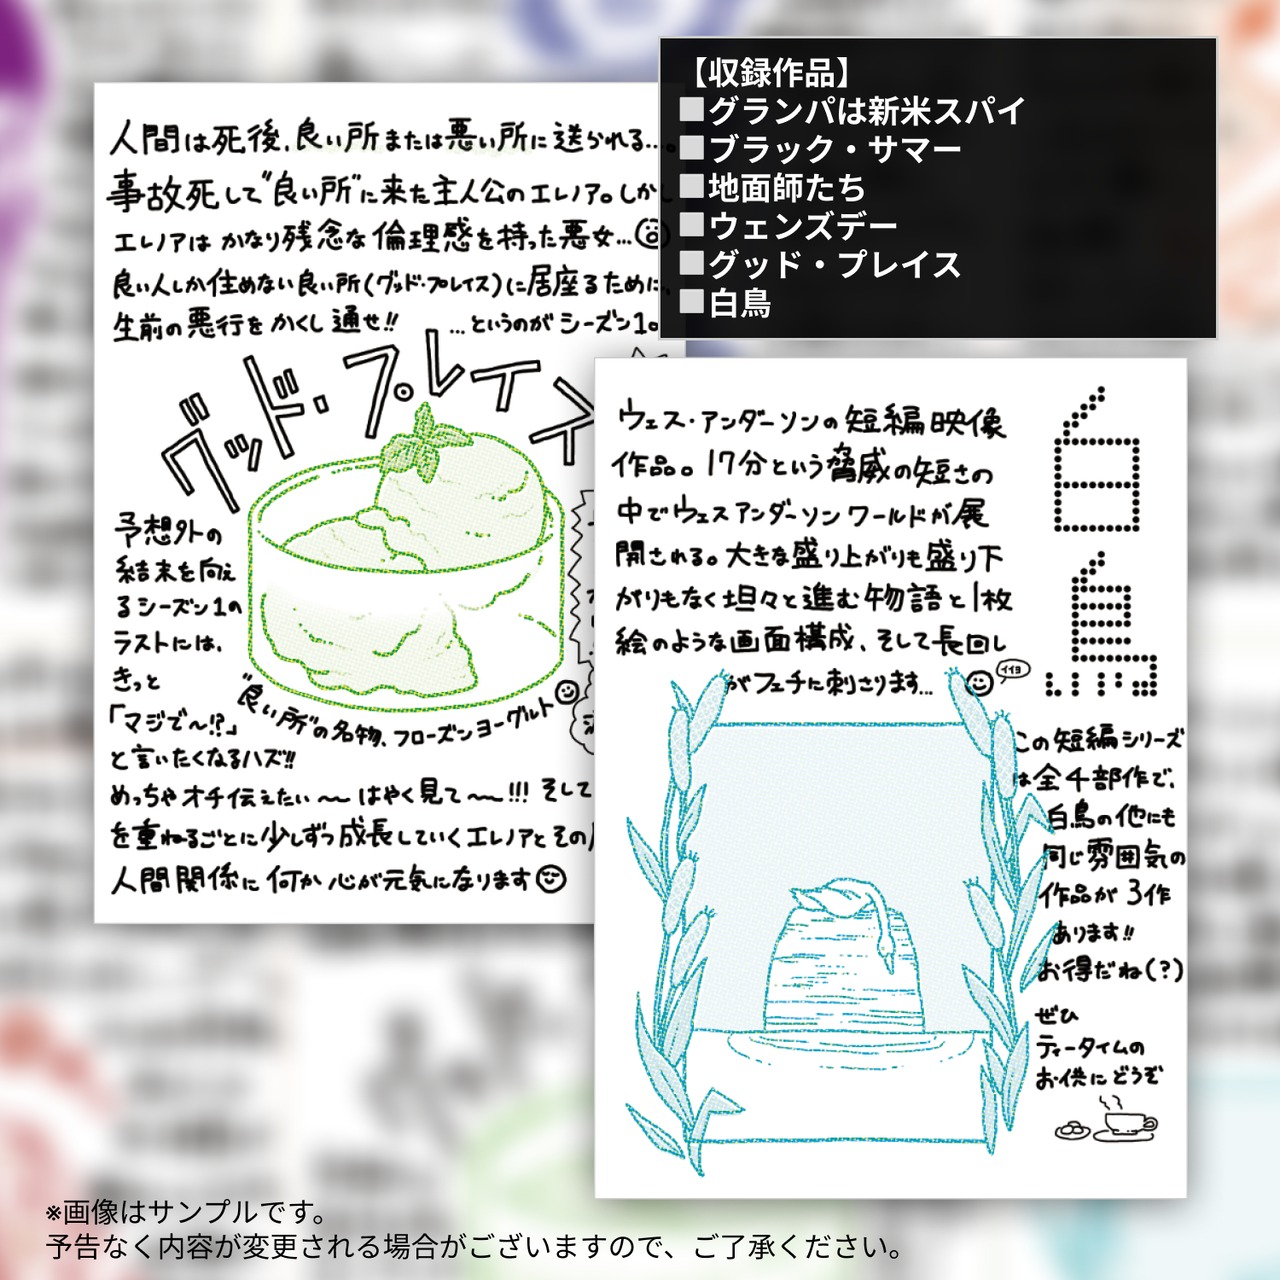 【収録作品】
■グランパは新米スパイ
■ブラック・サマー
■地面師たち
■ウェンズデー
■グッド・プレイス
■白鳥
人間は死後、良い所または悪い所に送られる…。
事故死して"良い所"に来た主人公のエレノア。しかし
エレノアは かなり残念な倫理感を持った悪女…
良い人しか住めない良い所(グッド・プレイス)に居座るために、
生前の悪行をかくし通せ!! …というのがシーズン1。
グッド・プレイス
予想外の
結末を向え
るシーズン1の
ラストには、
きっと
「マジで〜!?」
と言いたくなるハズ!!
"良い所"の名物、フローズンヨーグルト
めっちゃオチ伝えたい〜 はやく見て〜!!! そして
を重ねるごとに少しずつ成長していくエレノアとその
人間関係に何か心が元気になります
白鳥
ウェス・アンダーソンの短編映像
作品。17分という脅威の短さの
中でウェスアンダーソンワールドが展
開される。大きな盛り上がりも盛り下
がりもなく坦々と進む物語と1枚
絵のような画面構成、そして長回し
がフェチに刺さります…
イイヨ
この短編シリーズ
は全4部作で、
白鳥の他にも
同じ雰囲気の
作品が3作
あります!!
お得だね(?)
ぜひ
ティータイムの
お供にどうぞ
※画像はサンプルです。
予告なく内容が変更される場合がございますので、ご了承ください。